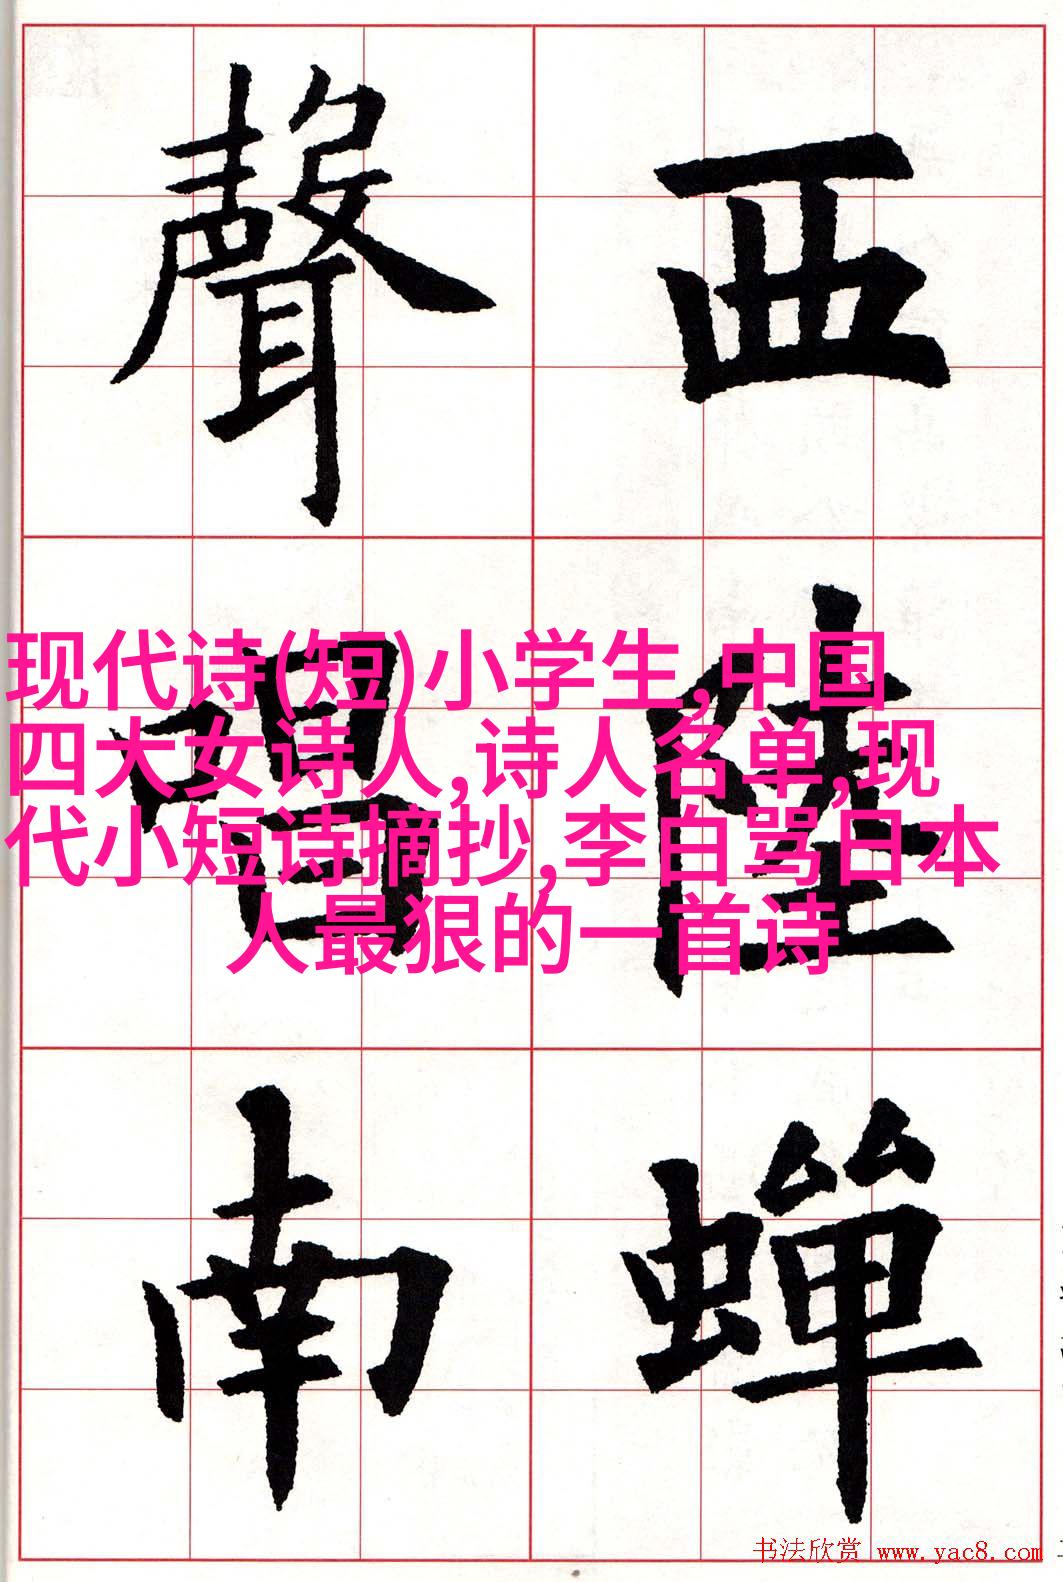 西陸蟬
聲唱南
现代诗(短)小学生,中国
四大女诗人,诗人名单,现
代小短诗摘抄,李白骂日本
人最狠的一首诗
书法欣赏 www.yac8.com